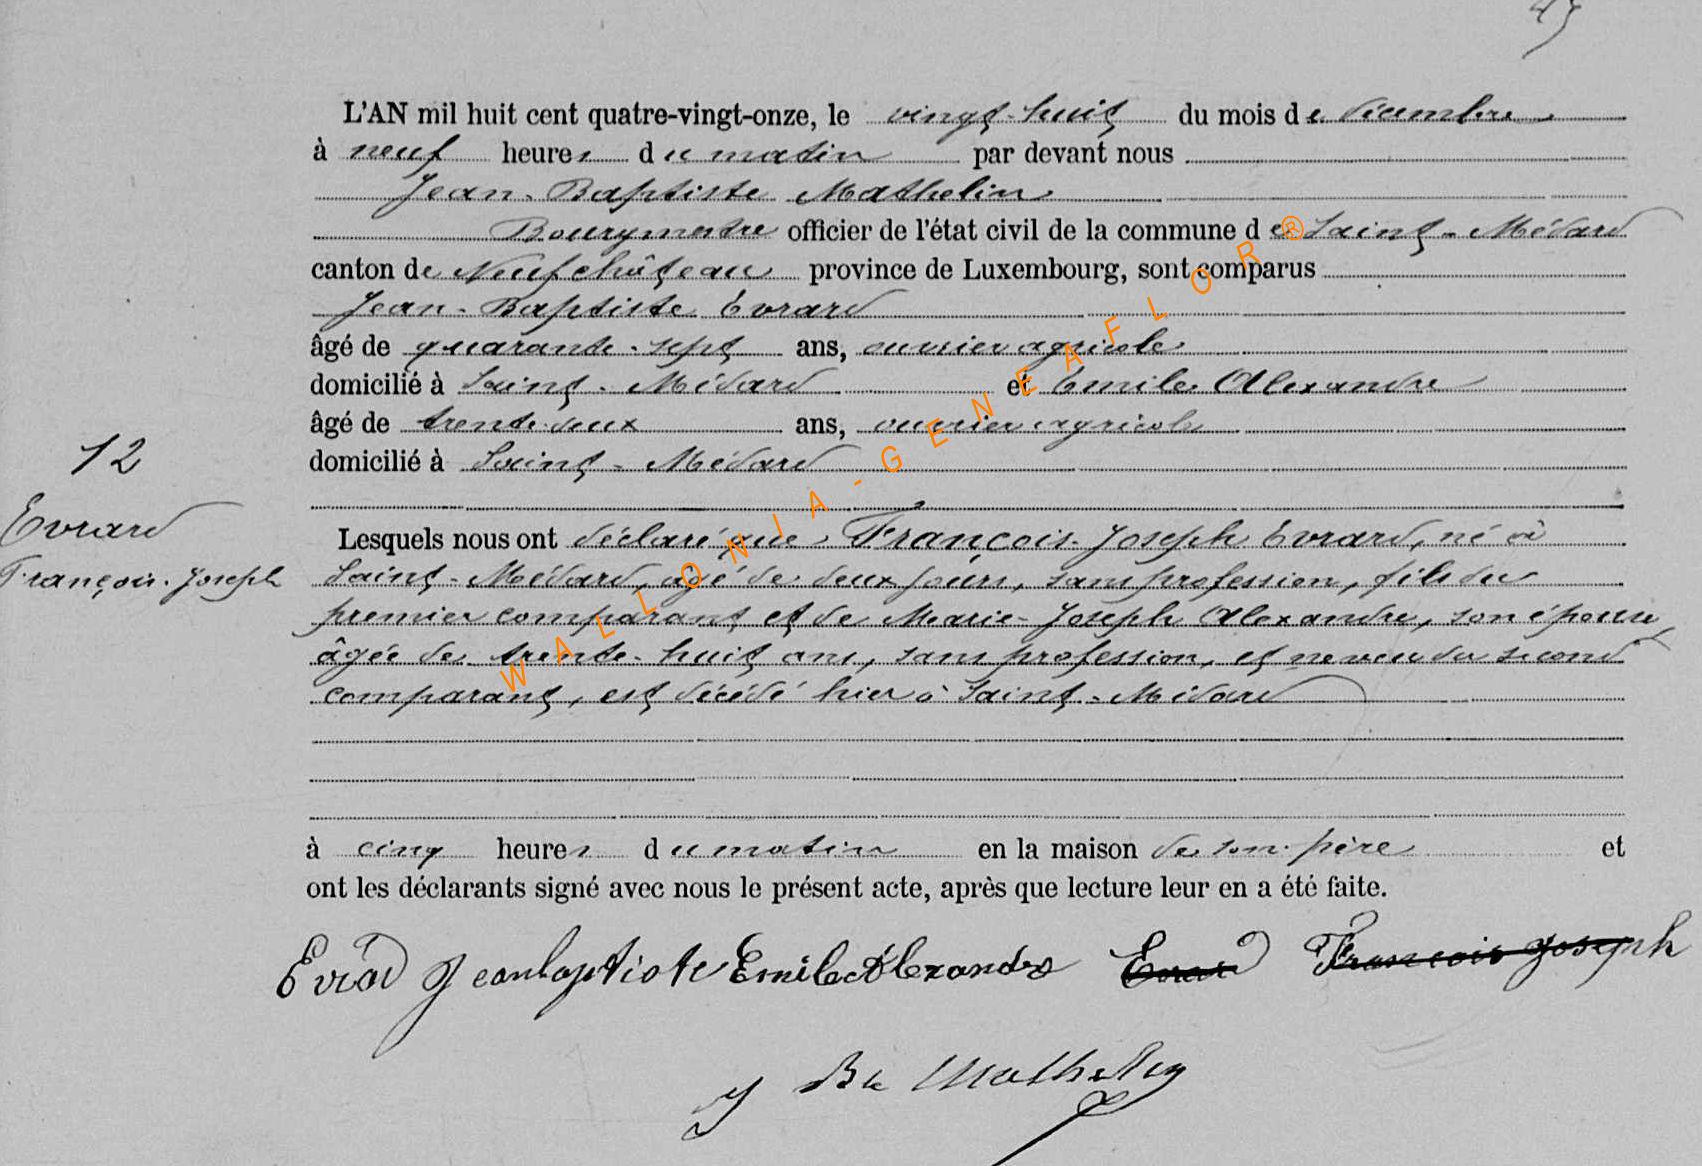 45
L'AN mil huit cent quatre-vingt-onze, le vingt-huit du mois de décembre
à neuf heures du matin par devant nous
Jean-Baptiste Mathelin
Bourgmestre officier de l'état civil de la commune de Saint-Médard
canton de Neufchâteau province de Luxembourg, sont comparus
Jean-Baptiste Evrard
âgé de quarante-sept ans, ouvrier agricole
domicilié à Saint-Médard et Emile Alexandre
âgé de trente-deux ans, ouvrier agricole
domicilié à Saint-Médard
12
Evrard
François-Joseph
Lesquels nous ont déclaré que François-Joseph Evrard, né à
Saint-Médard, âgé de deux jours, sans profession, fils du
premier comparant et de Marie-Joseph Alexandre, son épouse,
âgée de trente-huit ans, sans profession, et neveu du second
comparant, est décédé hier à Saint-Médard
à cinq heures du matin en la maison de son père et
ont les déclarants signé avec nous le présent acte, après que lecture leur en a été faite.
Evrad Jeanbaptiste Emile Alexandre Evrard François joseph
J Bte Mathelin
WALLONIA-GENEAFLOR®